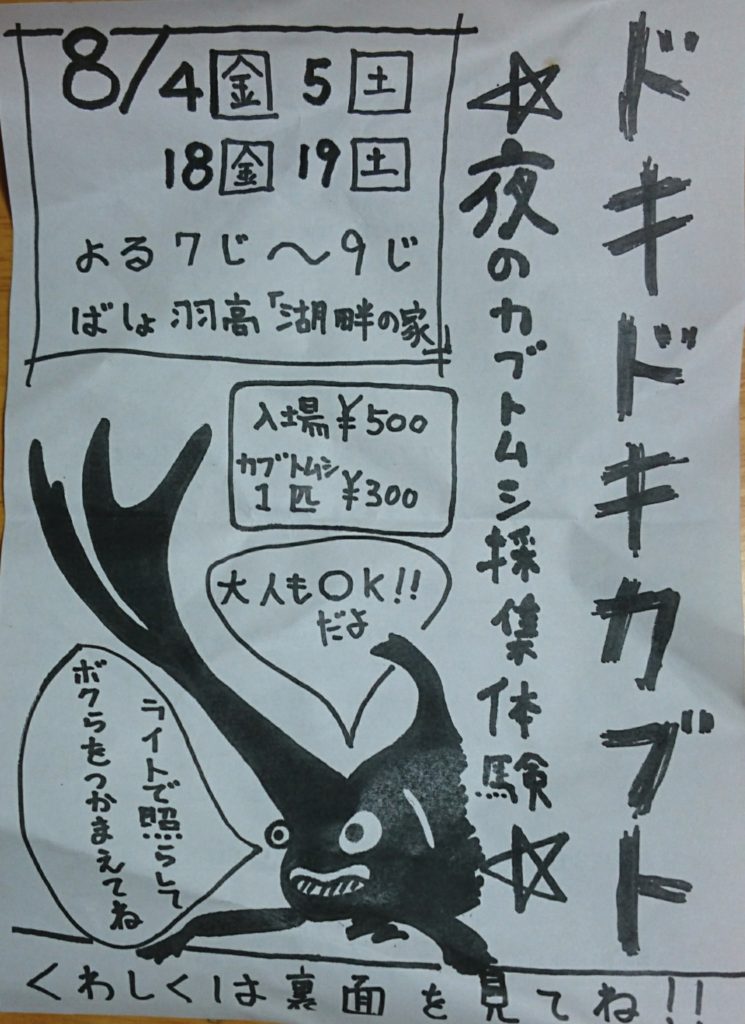 ドキドキカブト
☆夜のカブトムシ採集体験☆
8/4金 5土
18金 19土
よる7じ〜9じ
ばしょ 羽高「湖畔の家」
入場¥500
カブトムシ
1匹 ¥300
大人もOK!!
だよ
ライトで照らして
ボクらをつかまえてね
くわしくは裏面を見てね!!